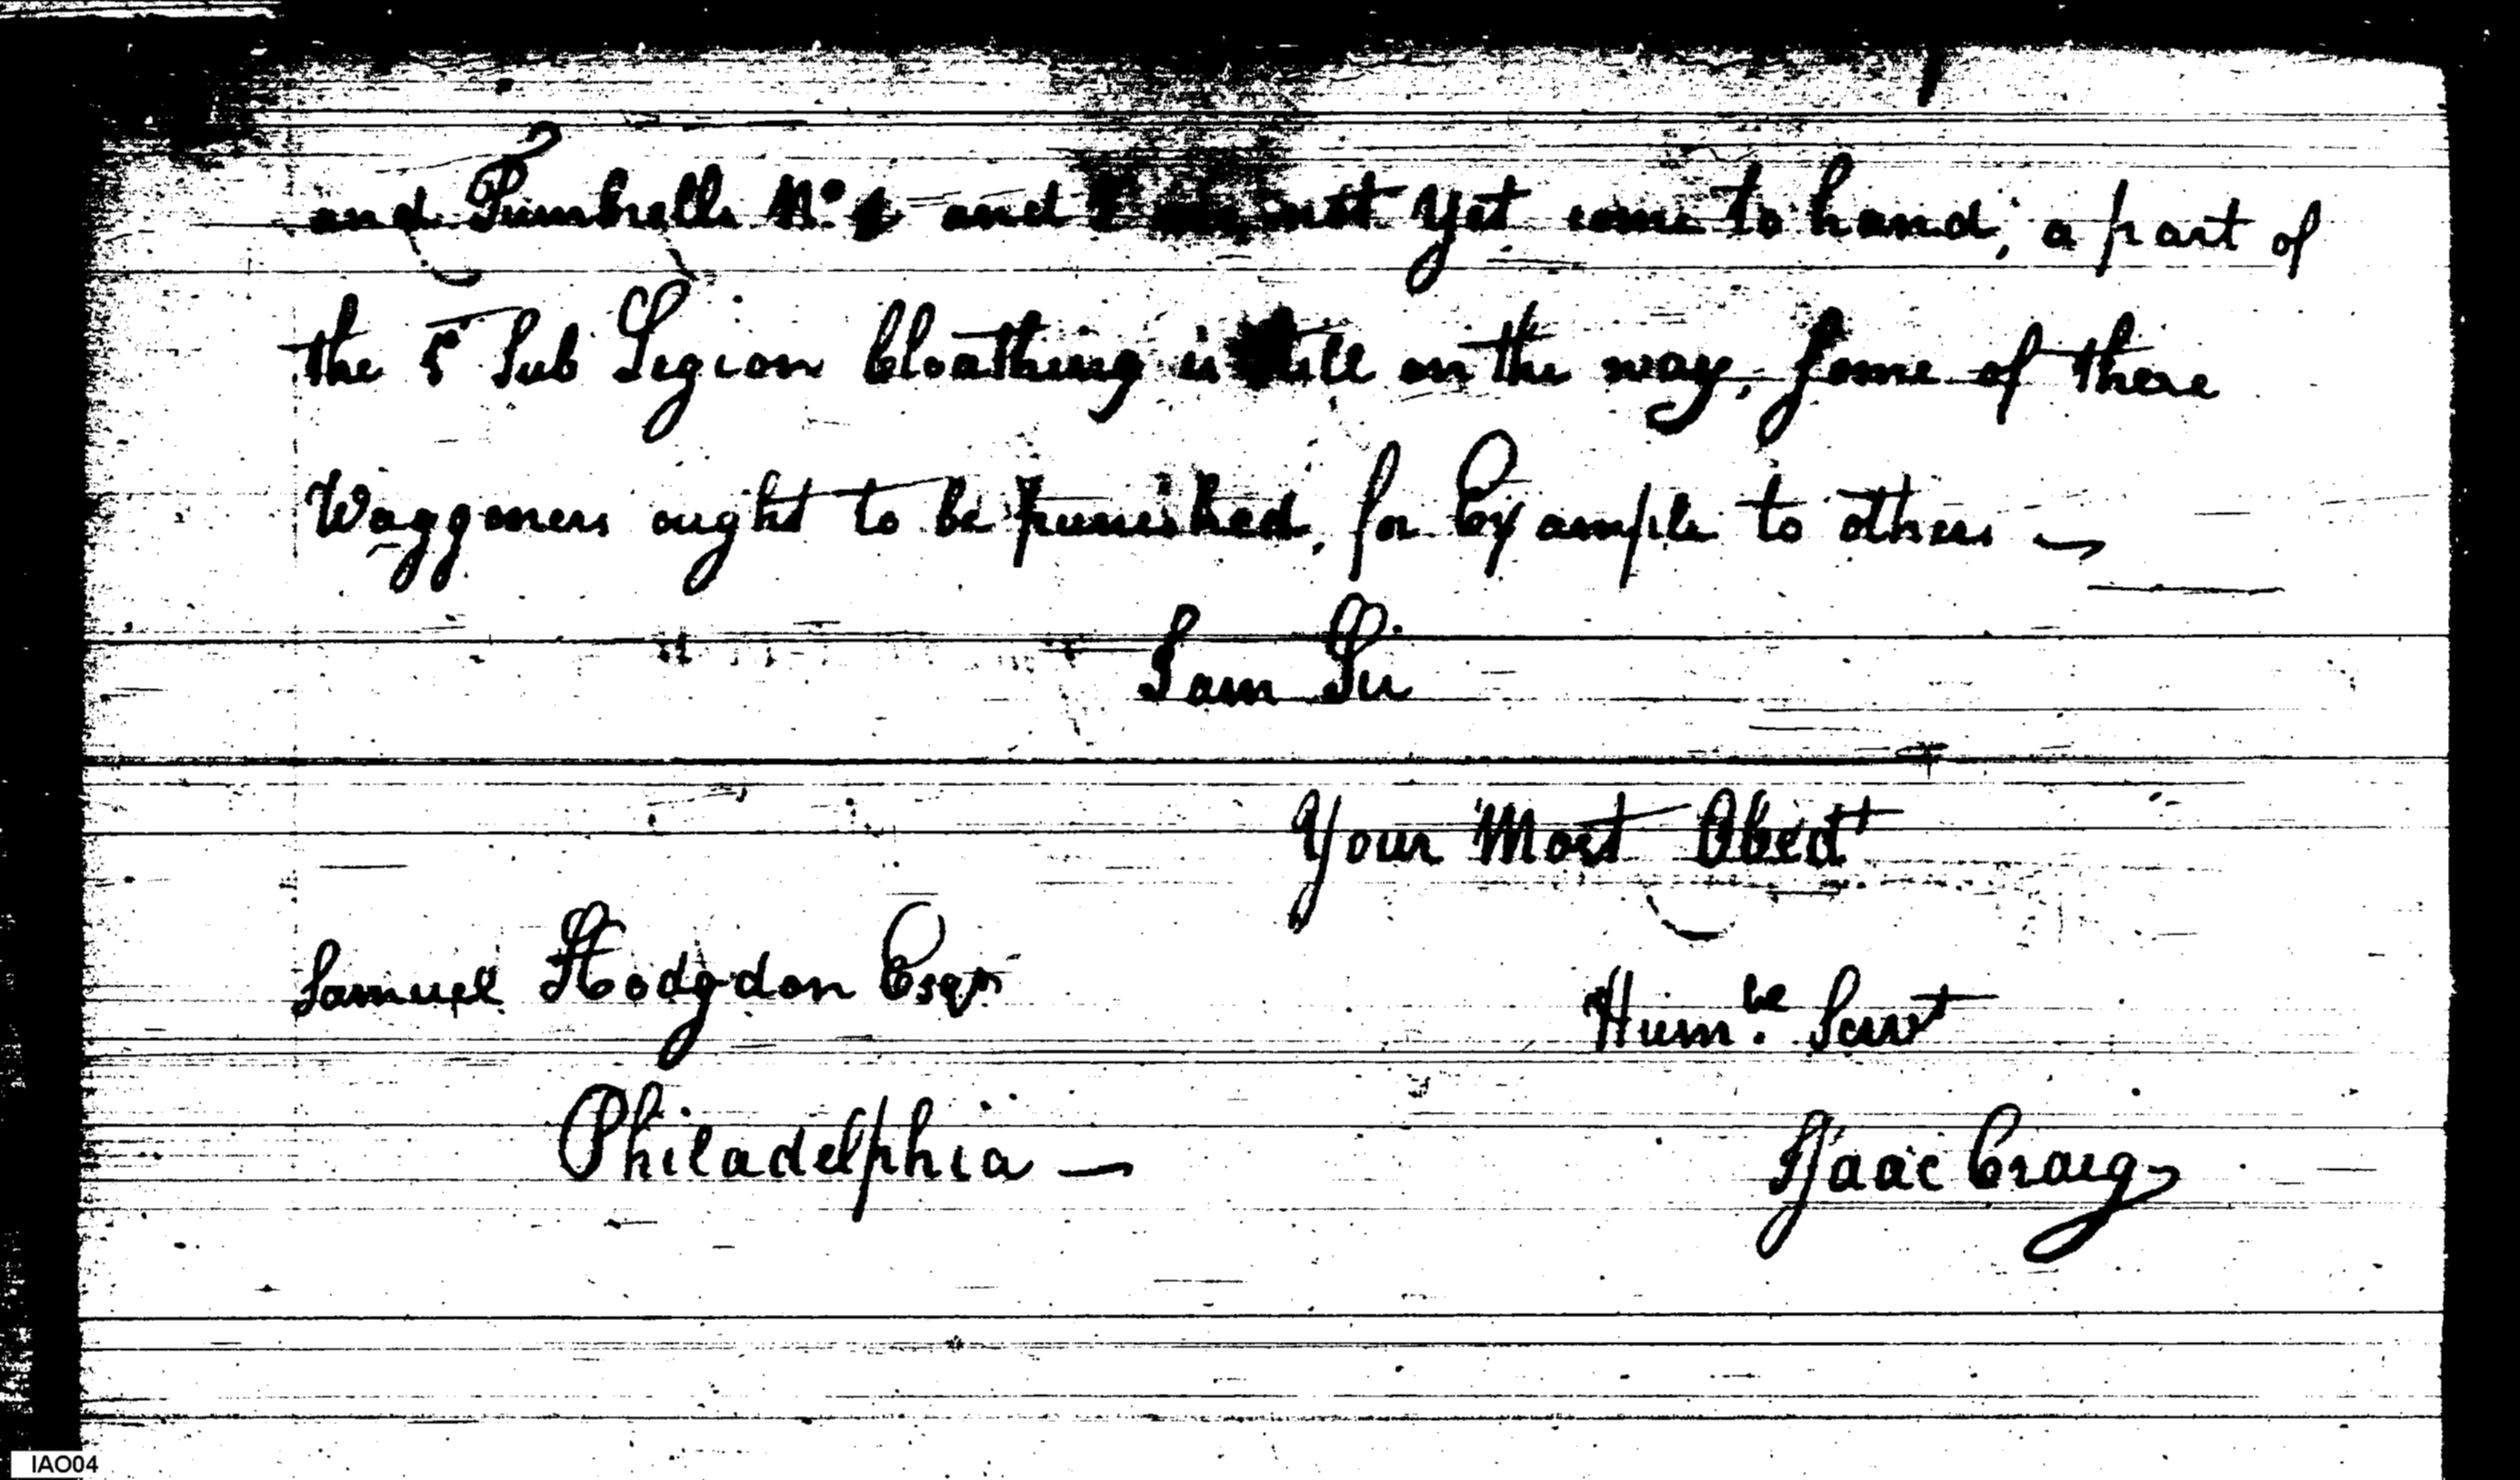 and Tumbrells No. 4 and not yet come to hand; a part of
the 5 Sub Legion Cloathing is still on the way, some of these
Waggoners ought to be punished, for Example to others —
I am Sir
Your Most Obedt
Samuel Hodgdon Esqr
Humble Servt
Philadelphia —
Isaac Craig
IAO04